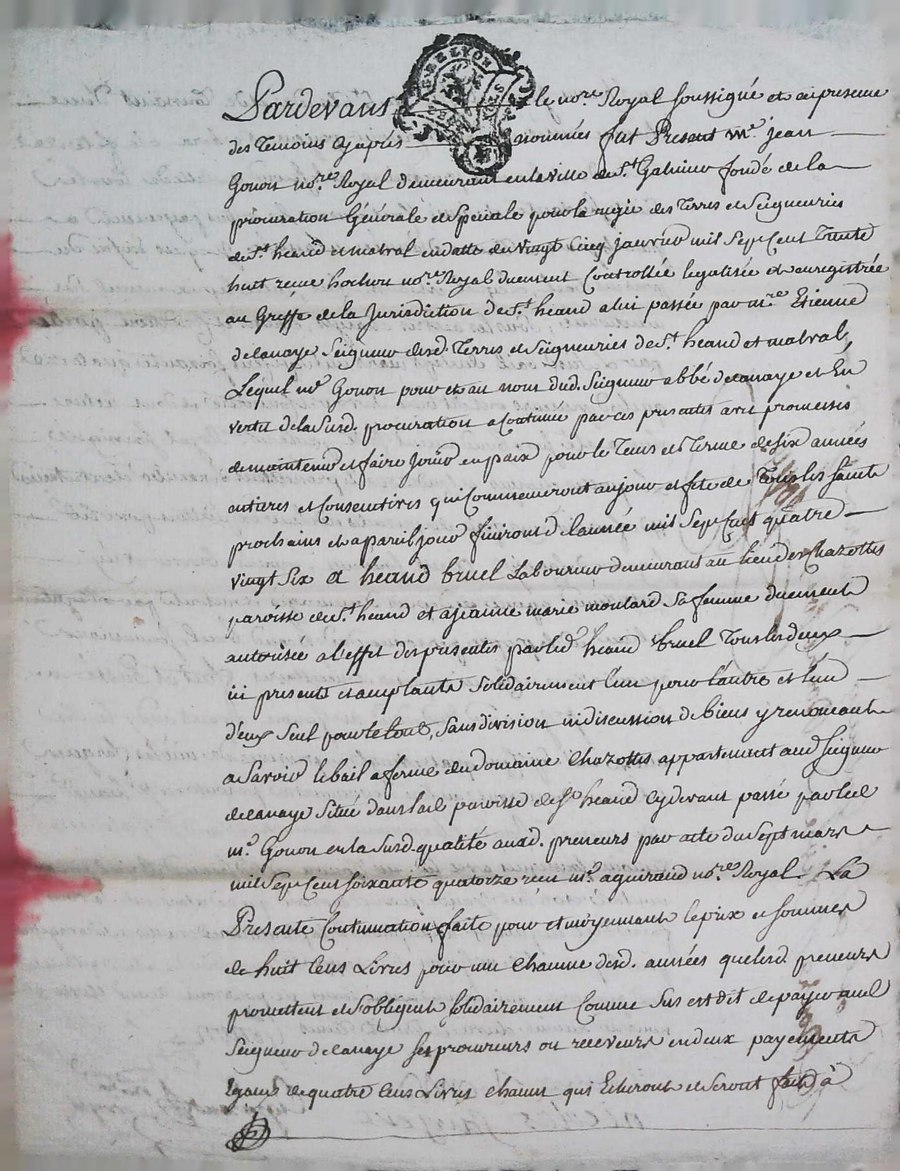 Pardevant le no.re Royal soussigné et en presence
des Temoins cy après nommés fut Present m.e jean
Gonon no.re Royal demeurant en la ville de S.t Galmier fondé de la
procuration Générale et speciale pour la regie des Terres et Seigneuries
de S.t heand et malval en datte du vingt cinq janvier mil sept cent Trente
huit reçue hochon no.re Royal duement Controllée legalisée et enregistrée
au Greffe de la Jurisdiction de S.t heand a lui passée par m.re Etienne
delanaye Seigneur desd. Terres et Seigneuries de S.t heand et malval,
Lequel m.e Gonon pour et au nom dud. Seigneur abbé delanaye et En
vertu de la susd. procuration a Continué par ces presentes avec promesses
de maintenir et faire jouir en paix pour le Tems et Terme de six années
entieres et Consecutives qui Commenceront au jour et fete de Tous les saints
prochains et a pareil jour finiront de l'année mil sept cens quatre
vingt six a heand bruel Laboureur demeurant au lieu des Chazottes
paroisse de S.t heand et a jeanne marie moulard sa femme duement
autorisée a l'effet des presentes par led. heand bruel Tous les deux
ici presents et acceptants solidairement l'un pour l'autre et l'un
d'eux seul pour le tout, sans division ni discussion de biens y renonceant
a savoir le bail a ferme du domaine Chazottes appartenent aud. seigneur
delanaye situé dans lad. paroisse de S.t heand cy devant passé par led.
m.e Gonon en la susd. qualité auxd. preneurs par acte du sept mars
mil sept cent soixante quatorze reçu m.e aguiraud no.re Royal. La
Presente Continuation faite pour et moyennant le prix et sommes
de huit Cens Livres pour une Chacune desd. années que lesd. preneurs
promettent et s'obligent solidairement Comme sus est dit de payer aud.
Seigneur delanaye ses procureurs ou receveurs en deux payements
Egaux de quatre Cens Livres chacun qui Echeront et seront faits à